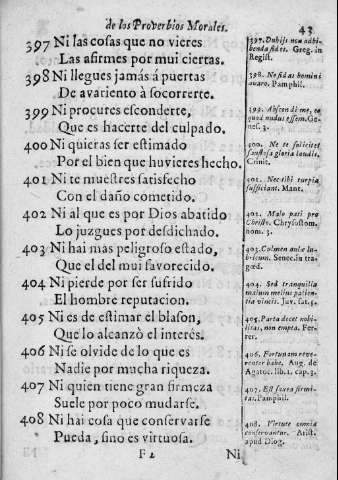 de los Proverbios Morales. 43
397 Ni las cosas que no vieres
Las afirmes por mui ciertas.
398 Ni llegues jamás á puertas
De avariento à socorrerte.
399 Ni procures esconderte,
Que es hacerte del culpado.
400 Ni quieras ser estimado
Por el bien que huvieres hecho.
401 Ni te muestres satisfecho
Con el daño cometido.
402 Ni al que es por Dios abatido
Lo juzgues por desdichado.
403 Ni hai mas peligroso estado,
Que el del mui favorecido.
404 Ni pierde por ser sufrido
El hombre reputacion.
405 Ni es de estimar el blason,
Que lo alcanzò el interés.
406 Ni se olvide de lo que es
Nadie por mucha riqueza.
407 Ni quien tiene gran firmeza
Suele por poco mudarse.
408 Ni hai cosa que conservarse
Pueda, sino es virtuosa.
F 2 Ni
397. Dubiis non adhi-
benda fides. Greg. in
Regist.
398. Ne fidas homini
avaro. Pamphil.
399. Abscondi me, eo
quod nudus essem. Ge-
nes. 3.
400. Ne te solicitet
gloria laudis.
Crinit.
401. Nec tibi turpia
sufficiant. Mant.
402. Malo pati pro
Christo. Chrysostom.
nom. 3.
403. Culmen aulæ lu-
bricum. Senec. in tra-
gœd.
404. Sed tranquilla
maium melius patien-
tia vincit. Juv. sat. 4.
405. Parta decet nobi-
litas, non empta. Fer-
rer.
406. Fortunam reve-
renter habe. Aug. de
Agatoc. lib. 1. cap. 3.
407. Est soxea firmi-
tas. Pamphil.
408. Virtute omnia
conservantur. Arist.
apud Diog.